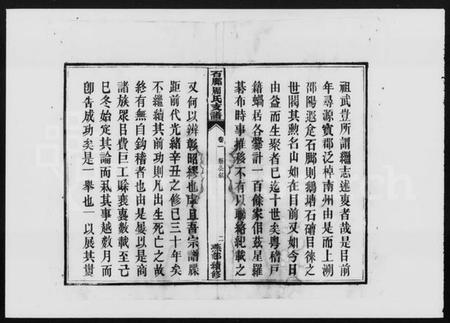 祖武豈所謂繼志述事者哉是目前
年尋源寶郡泛棹南州由是而上溯
邵陽遐企石鄘則鵝塘石磧目徠之
世閥其勲名山如在目前又如今日
由益而生聚者已迄十世矣粤稽戸
籍蝸居各爨計一百餘家佀茲星羅
棊布時事推移不有以聯絡紀載之
石鄘周氏支譜
卷一
二
又何以辨彰昭穆也序且吾宗譜牒
距前代光緒辛丑之修已三十年矣
不繼續其前功則凡出生死亡之故
終有無自鉤稽者也由是屢以是商
諸族眾目費巨工賒裒裏數載至己
巳冬始定其論而剞其事越數月而
卽吿成功矣是一舉也一以展其貫